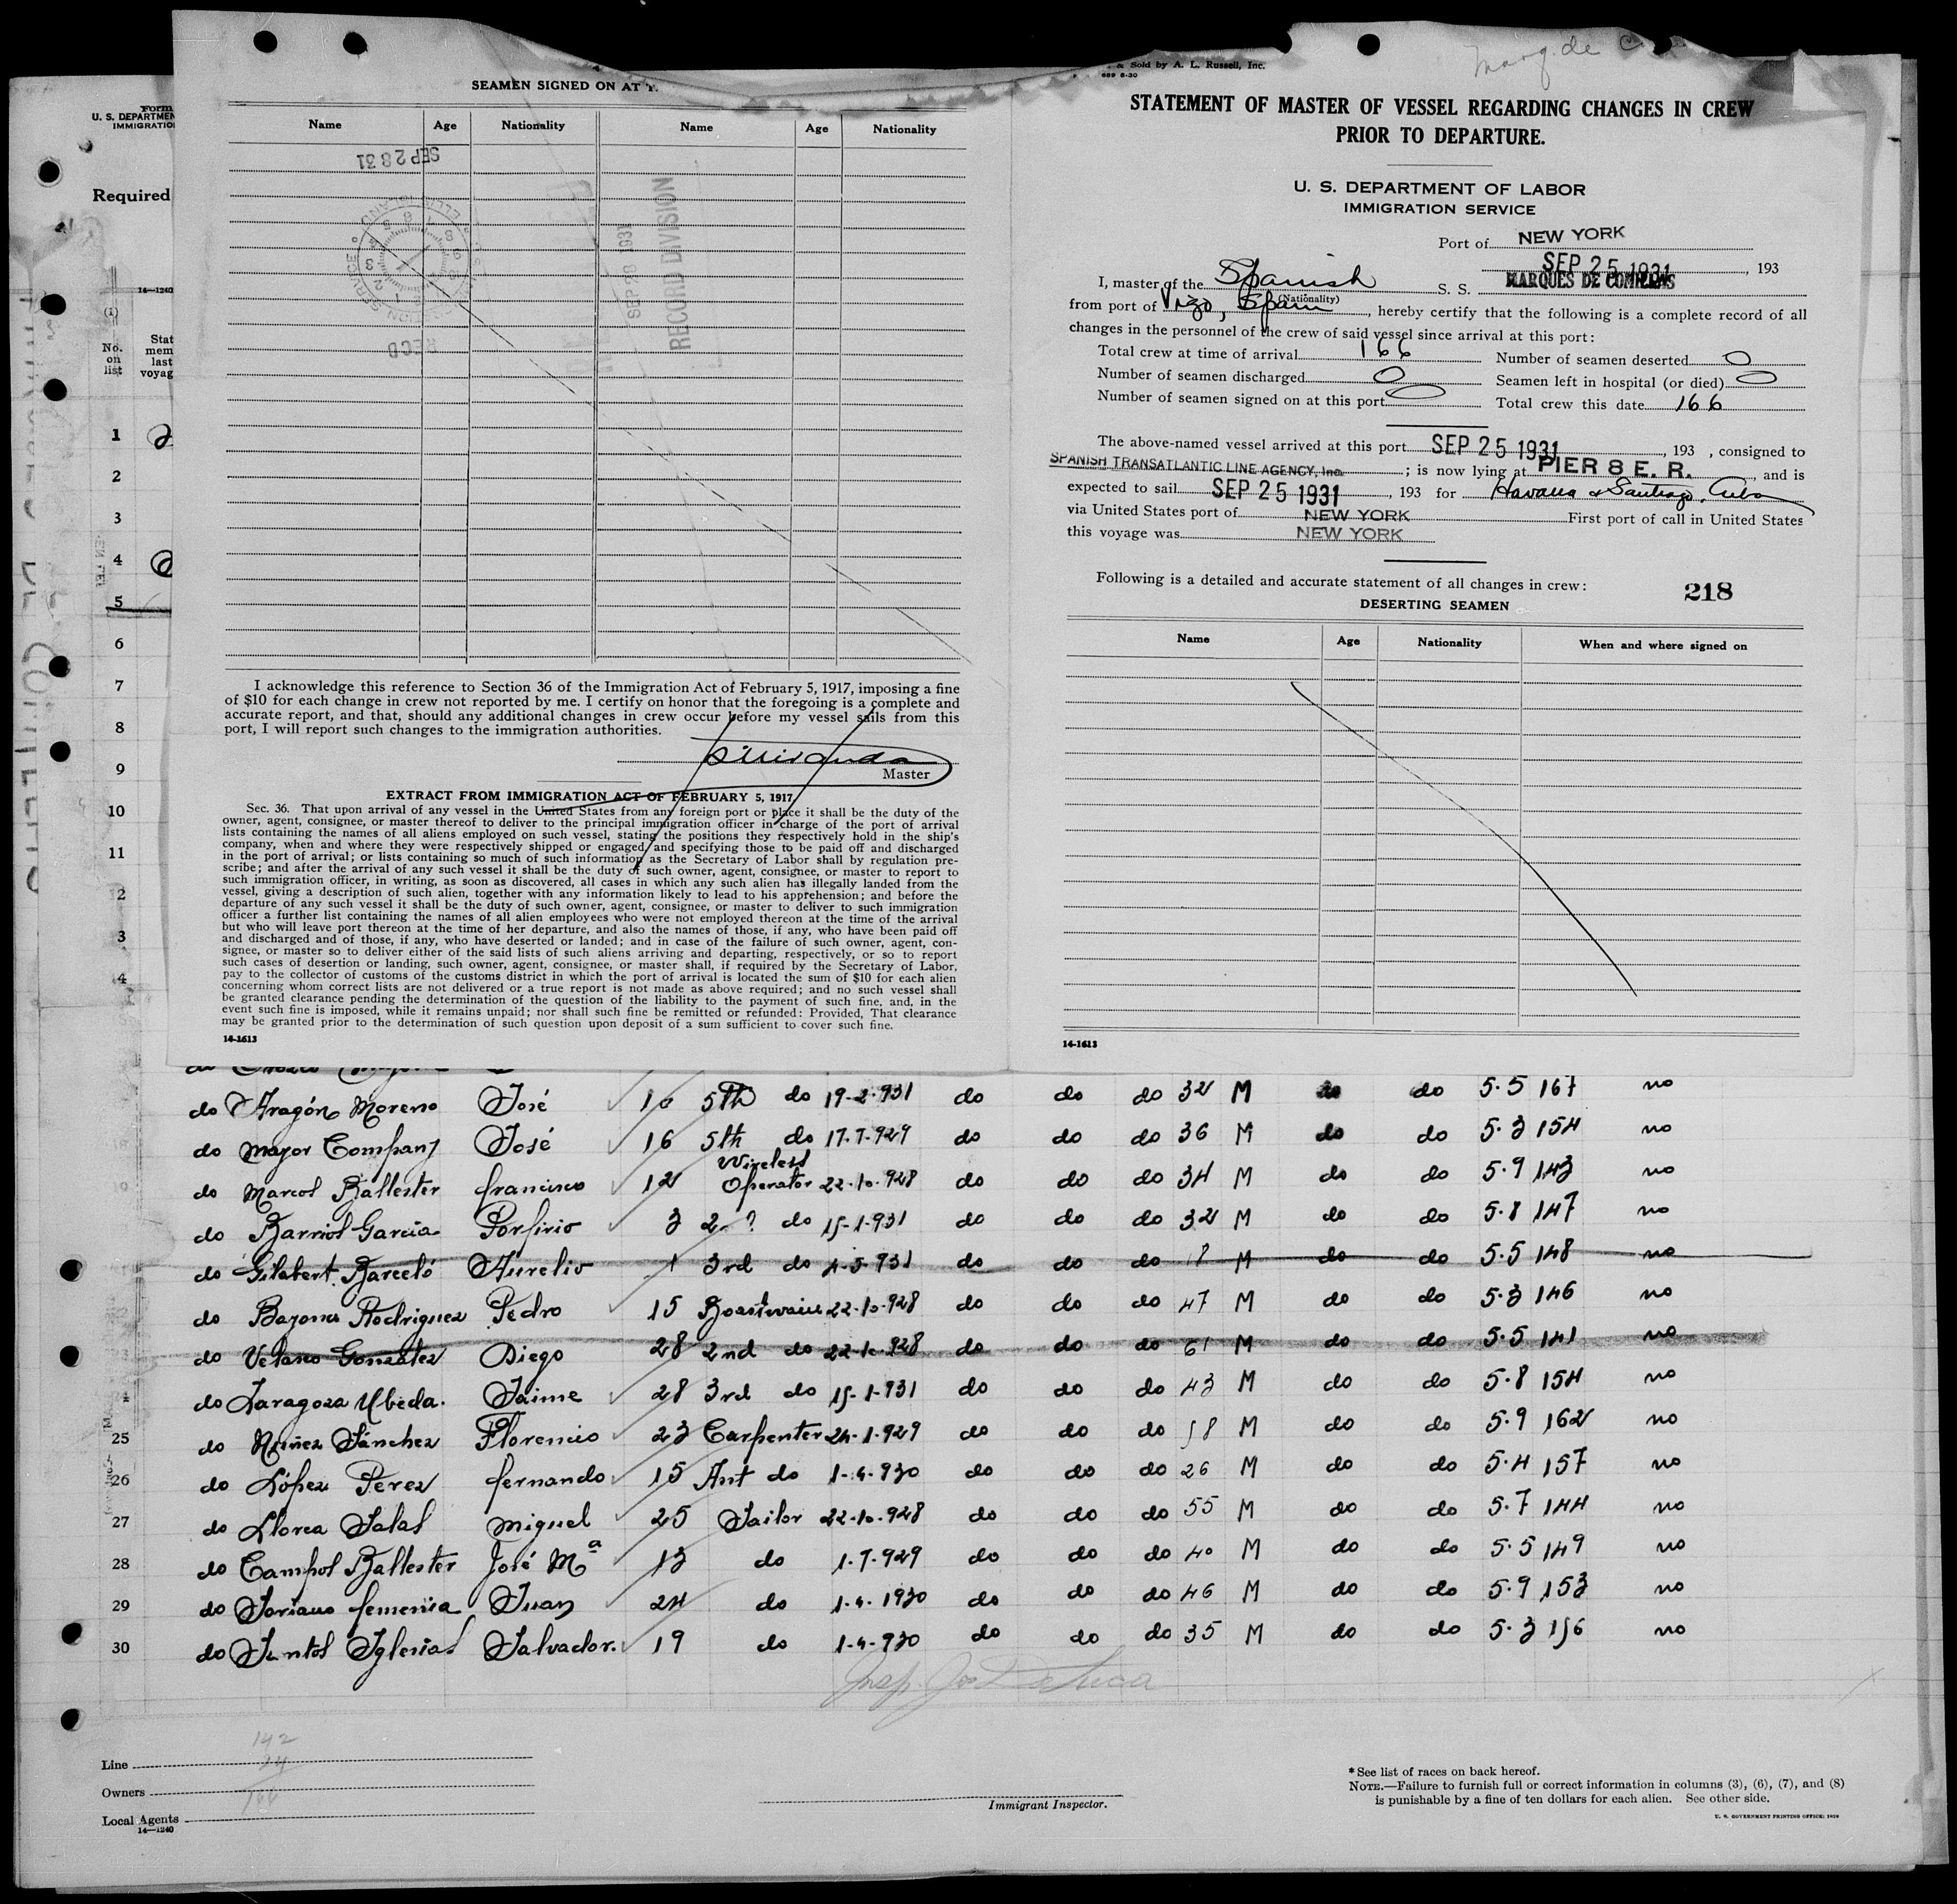 Marq. de C
SEAMEN SIGNED ON AT
Name Age Nationality Name Age Nationality
SEP 28 31
RECD
SEP 28 1931
RECORD DIVISION
I acknowledge this reference to Section 36 of the Immigration Act of February 5, 1917, imposing a fine
of $10 for each change in crew not reported by me. I certify on honor that the foregoing is a complete and
accurate report, and that, should any additional changes in crew occur before my vessel sails from this
port, I will report such changes to the immigration authorities.
Master
EXTRACT FROM IMMIGRATION ACT OF FEBRUARY 5, 1917
Sec. 36. That upon arrival of any vessel in the United States from any foreign port or place it shall be the duty of the
owner, agent, consignee, or master thereof to deliver to the principal immigration officer in charge of the port of arrival
lists containing the names of all aliens employed on such vessel, stating the positions they respectively hold in the ship's
company, when and where they were respectively shipped or engaged, and specifying those to be paid off and discharged
in the port of arrival; or lists containing so much of such information as the Secretary of Labor shall by regulation pre-
scribe; and after the arrival of any such vessel it shall be the duty of such owner, agent, consignee, or master to report to
such immigration officer, in writing, as soon as discovered, all cases in which any such alien has illegally landed from the
vessel, giving a description of such alien, together with any information likely to lead to his apprehension; and before the
departure of any such vessel it shall be the duty of such owner, agent, consignee, or master to deliver to such immigration
officer a further list containing the names of all alien employees who were not employed thereon at the time of the arrival
but who will leave port thereon at the time of her departure, and also the names of those, if any, who have been paid off
and discharged and of those, if any, who have deserted or landed; and in case of the failure of such owner, agent, con-
signee, or master so to deliver either of the said lists of such aliens arriving and departing, respectively, or so to report
such cases of desertion or landing, such owner, agent, consignee, or master shall, if required by the Secretary of Labor,
pay to the collector of customs of the customs district in which the port of arrival is located the sum of $10 for each alien
concerning whom correct lists are not delivered or a true report is not made as above required; and no such vessel shall
be granted clearance pending the determination of the question of the liability to the payment of such fine, and, in the
event such fine is imposed, while it remains unpaid; nor shall such fine be remitted or refunded: Provided, That clearance
may be granted prior to the determination of such question upon deposit of a sum sufficient to cover such fine.
14-1613
& Sold by A. L. Russell, Inc.
689 8-30
STATEMENT OF MASTER OF VESSEL REGARDING CHANGES IN CREW
PRIOR TO DEPARTURE.
U. S. DEPARTMENT OF LABOR
IMMIGRATION SERVICE
Port of NEW YORK
SEP 25 1931, 193
I, master of the Spanish S. S. MARQUES DE COMILLAS
(Nationality)
from port of Vigo, Spain, hereby certify that the following is a complete record of all
changes in the personnel of the crew of said vessel since arrival at this port:
Total crew at time of arrival 166 Number of seamen deserted 0
Number of seamen discharged 0 Seamen left in hospital (or died) 0
Number of seamen signed on at this port 0 Total crew this date 166
The above-named vessel arrived at this port SEP 25 1931, 193 , consigned to
SPANISH TRANSATLANTIC LINE AGENCY, Inc. ; is now lying at PIER 8 E. R., and is
expected to sail SEP 25 1931, 193 for Havana & Santiago, Cuba
via United States port of NEW YORK First port of call in United States
this voyage was NEW YORK
Following is a detailed and accurate statement of all changes in crew:
218
DESERTING SEAMEN
Name Age Nationality When and where signed on
14-1613
Form
U. S. DEPARTMEN
IMMIGRATIO
Required
14—1240
(1)
No. on list
Stat mem last voyag
1
2
3
4
5
6
7
8
9
10
11
12
3
4
do Aragón Moreno José 16 5th do 19-2-931 do do do 32 M do do 5.5 167 no
do Mayor Company José 16 5th do 17-7-929 do do do 36 M do do 5.3 154 no
do Marcos Ballester francisco 12 Wireless Operator 22-10-928 do do do 34 M do do 5.9 143 no
do Barrios Garcia Porfirio 3 2 do 15-1-931 do do do 32 M do do 5.8 147 no
do Gilabert Barceló Aurelio 1 3rd do 4-5-931 do do do 18 M do do 5.5 148 no
do Bayona Rodriguez Pedro 15 Boastwain 22-10-928 do do do 47 M do do 5.3 146 no
do Velasco Gonzalez Diego 28 2nd do 22-10-928 do do do 61 M do do 5.5 141 no
do Zaragoza Ubeda. Jaime 28 3rd do 15-1-931 do do do 43 M do do 5.8 154 no
25 do Nuñez Sánchez Florencio 23 Carpenter 24-1-929 do do do 58 M do do 5.9 162 no
26 do López Perez fernando 15 Ast do 1-4-930 do do do 26 M do do 5.4 157 no
27 do Llorca Salas Miguel 25 Sailor 22-10-928 do do do 55 M do do 5.7 144 no
28 do Campos Ballester José Mª 13 do 1-7-929 do do do 40 M do do 5.5 149 no
29 do Soriano femenia Juan 24 do 1-4-1930 do do do 46 M do do 5.9 153 no
30 do Santos Iglesias Salvador. 19 do 1-4-930 do do do 35 M do do 5.3 156 no
142
24
166
Line
Owners
Local Agents
14—1240
Immigrant Inspector.
* See list of races on back hereof.
NOTE.—Failure to furnish full or correct information in columns (3), (6), (7), and (8)
is punishable by a fine of ten dollars for each alien. See other side.
U. S. GOVERNMENT PRINTING OFFICE: 1929